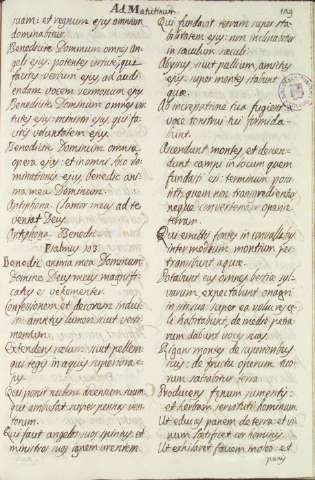 Ad Matutinum
109
suam: et regnum ejus omnium
dominabitur.
Benedicite Dominum omnes an-
geli ejus: potentes virtute, qui
facitis verbum ejus, ad audi
endam vocem sermonum ejus
Benedicite Dominum omnes vir
tutes ejus: ministri ejus, qui fa
citis voluntatem ejus.
Benedicite Dominum omnia
opera ejus: et in omni loco do
minationis ejus, benedic ani
ma mea Dominum.
Antiphona. Clamor meus ad te
veniat Deus.
Antiphona. Benedic
Psalmus 103
Benedic anima mea Dominum
Domine Deus meus magnifi-
catus es vehementer.
Confessionem et decorem induis
ti: amictus lumine sicut vesti
mentum.
Extendens coelum sicut pellem:
qui tegis in aquis superiora e-
jus.
Qui ponis nubem ascensum tuum:
qui ambulas super pennas ven
torum.
Qui facit angelos suos spiritus: et
ministros suos ignem urentem.
Qui fundasti terram super sta-
bilitatem ejus: non inclinabitur
in saeculum saeculi.
Abyssus, sicut pallium, amictus
ejus: super montes stabunt
aquae.
Ab increpatione tua fugient: a
voce tonitrui tui formida-
bunt.
Ascendunt montes, et descen-
dunt campi in locum quem
fundasti eis: terminum posu
isti, quem non transgredientur
neque convertentur operire
terram.
Qui emittis fontes in convallibus:
inter medium montium per
transibunt aquae.
Potabunt eas omnes bestiae sil-
varum: expectabunt onagri
in siti sua: super ea volucres coe
li habitabunt, de medio petra
rum dabunt voces suas
Rigans montes de superioribus
suis: de fructu operum tuo
rum satiabitur terra
Producens foenum jumentis:
et herbam servituti hominum.
Ut educas panem de terra: et vi
num laetificet cor hominis
Ut exhilaret faciem in oleo: et
panis